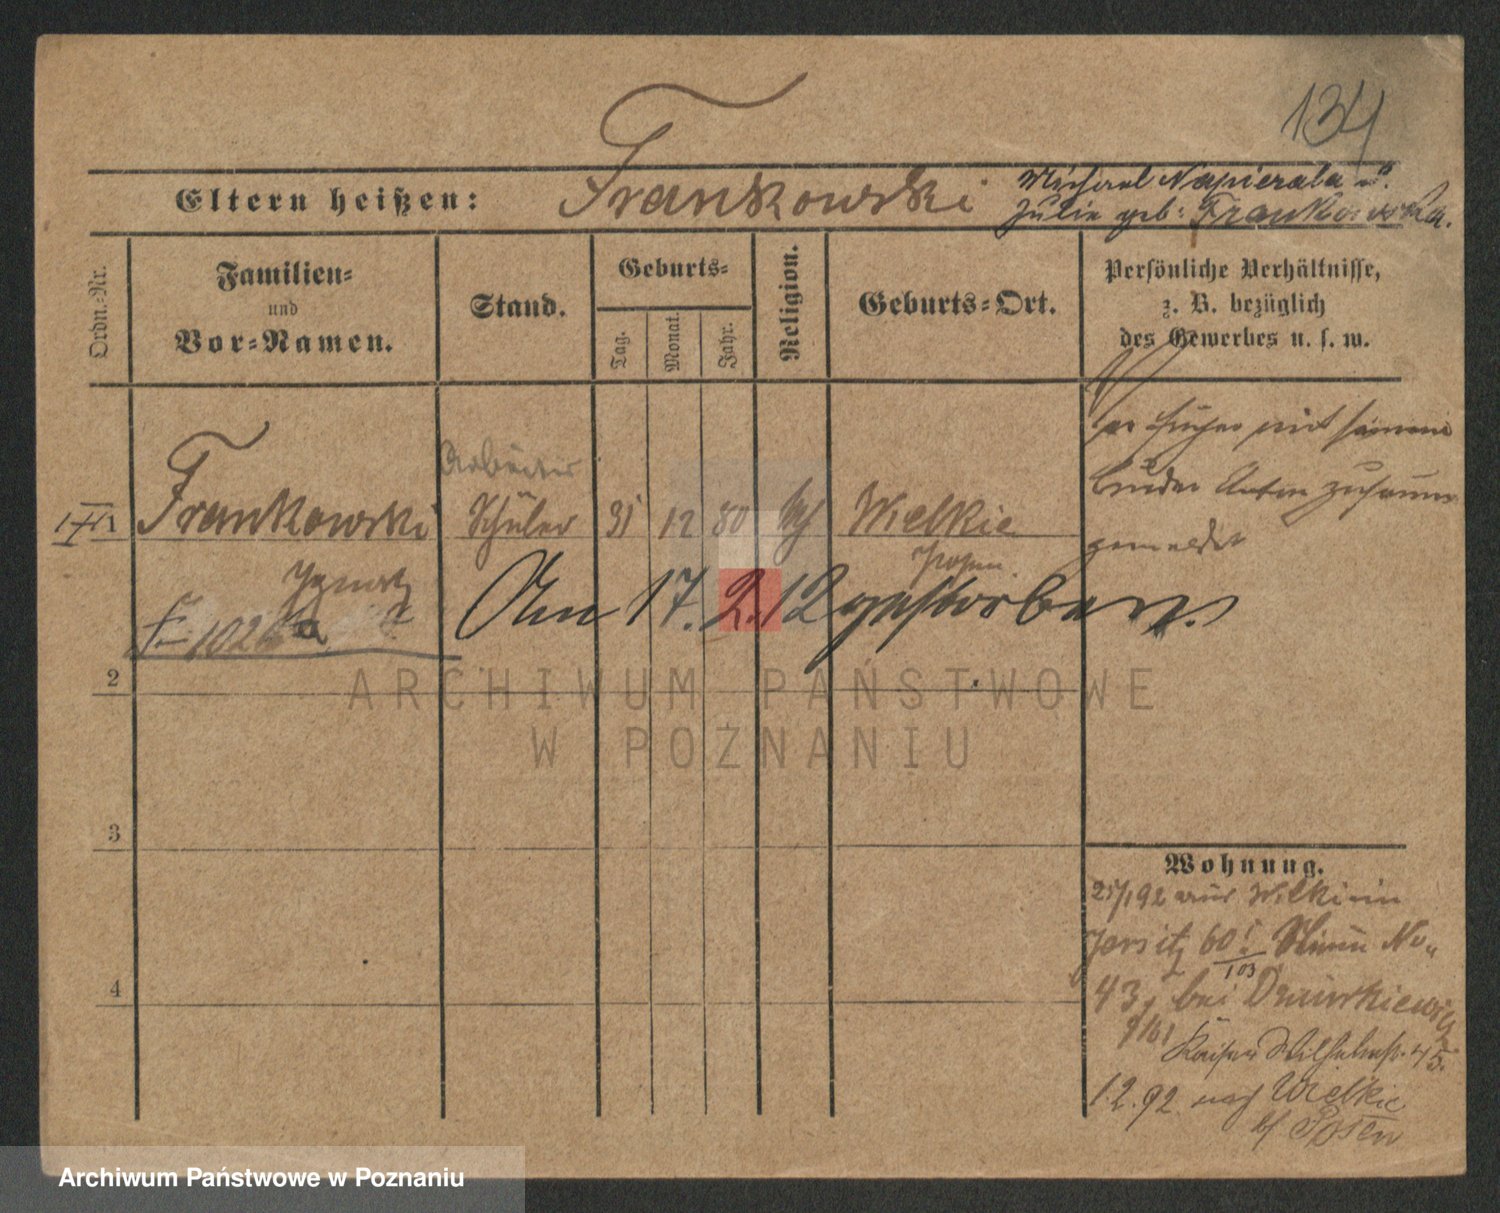 134
Eltern heißen: Frankowski Michael Napierala u.
Julie geb: Frankowska.
Ordn.-Nr.
Familien=
und
Vor=Namen.
Stand.
Geburts=
Tag.
Monat.
Jahr.
Religion.
Geburts=Ort.
Persönliche Verhältnisse,
z. B. bezüglich
des Gewerbes u. s. w.
Arbeiter
1 Frankowski Schüler 31 12 80 Wielkie
Ignatz Posen
Am 17. 2. 12 gestorben.
früher mit seinem
Bruder Anton zusammen
gemeldet
2
3
4
Wohnung.
aus Wilkie in
Jersitz 60
103
43, bei
9/101 Kaiser Wilhelmstr. 45.
1.2.92. nach Wielkie
b/ Posen
ARCHIWUM PAŃSTWOWE
W POZNANIU
Archiwum Państwowe w Poznaniu